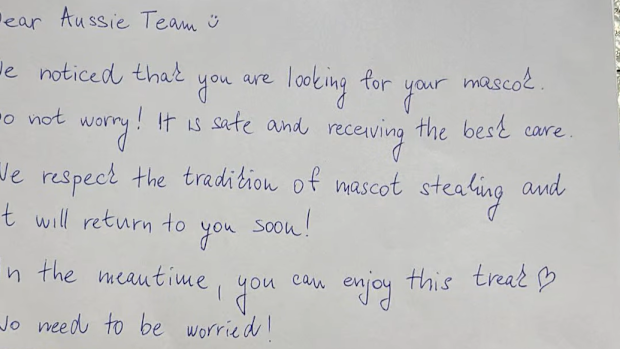 ear Aussie Team ü
e noticed that you are looking for your mascot.
o not worry! It is safe and receiving the best care.
We respect the tradition of mascot stealing and
t will return to you soon!
n the meantime, you can enjoy this treat ♡
No need to be worried!